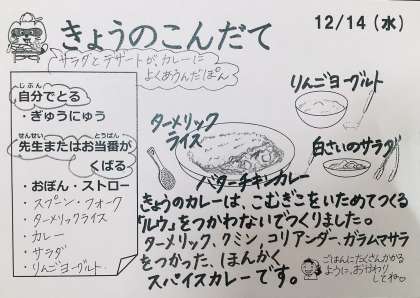 きょうのこんだて
12/14（水）
サラダとデザートがカレーに
よくあうんだぽん
じぶん
自分でとる
・ぎゅうにゅう
せんせい とうばん
先生またはお当番が
くばる
・おぼん・ストロー
・スプーン・フォーク
・ターメリックライス
・カレー
・サラダ
・りんごヨーグルト
りんごヨーグルト
ターメリック
ライス
白さいのサラダ
バターチキンカレー
きょうのカレーは、こむぎこをいためてつくる
「ルウ」をつかわないでつくりました。
ターメリック、クミン、コリアンダー、ガラムマサラ
をつかった、ほんかく
スパイスカレーです。
ごはんにたくさんかかる
ように、おかわり
してね。